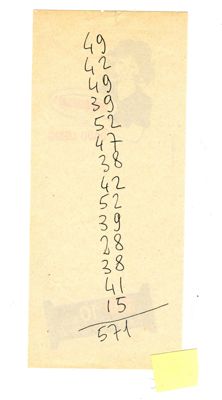 49
42
49
39
52
47
38
42
52
39
28
38
41
15
571